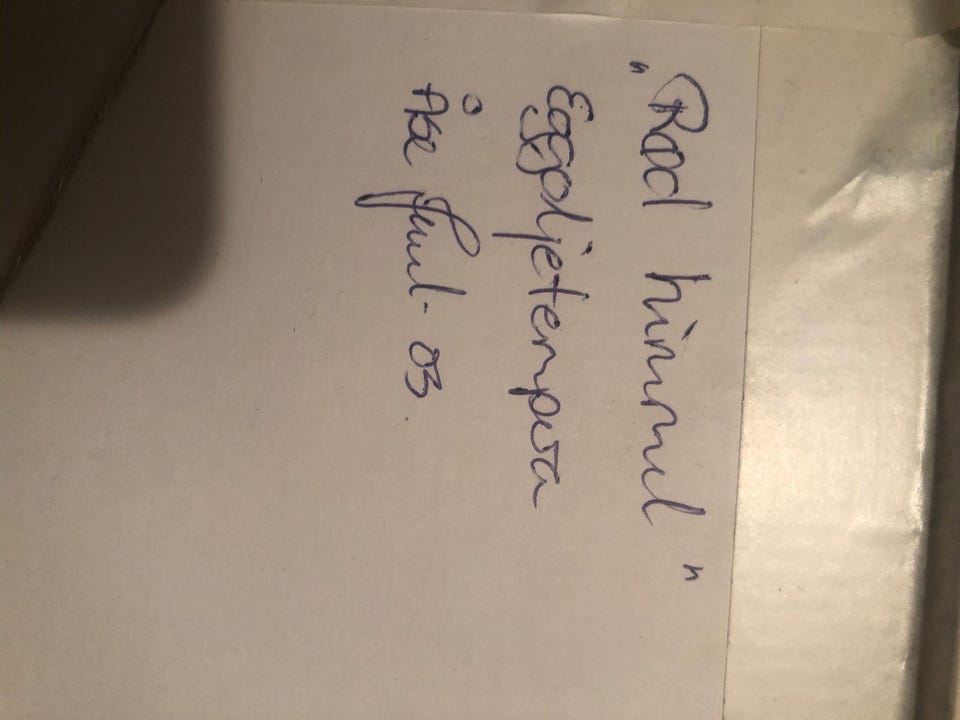 "Rød himmel"
Eggoljetempera
Åse Juul-03.